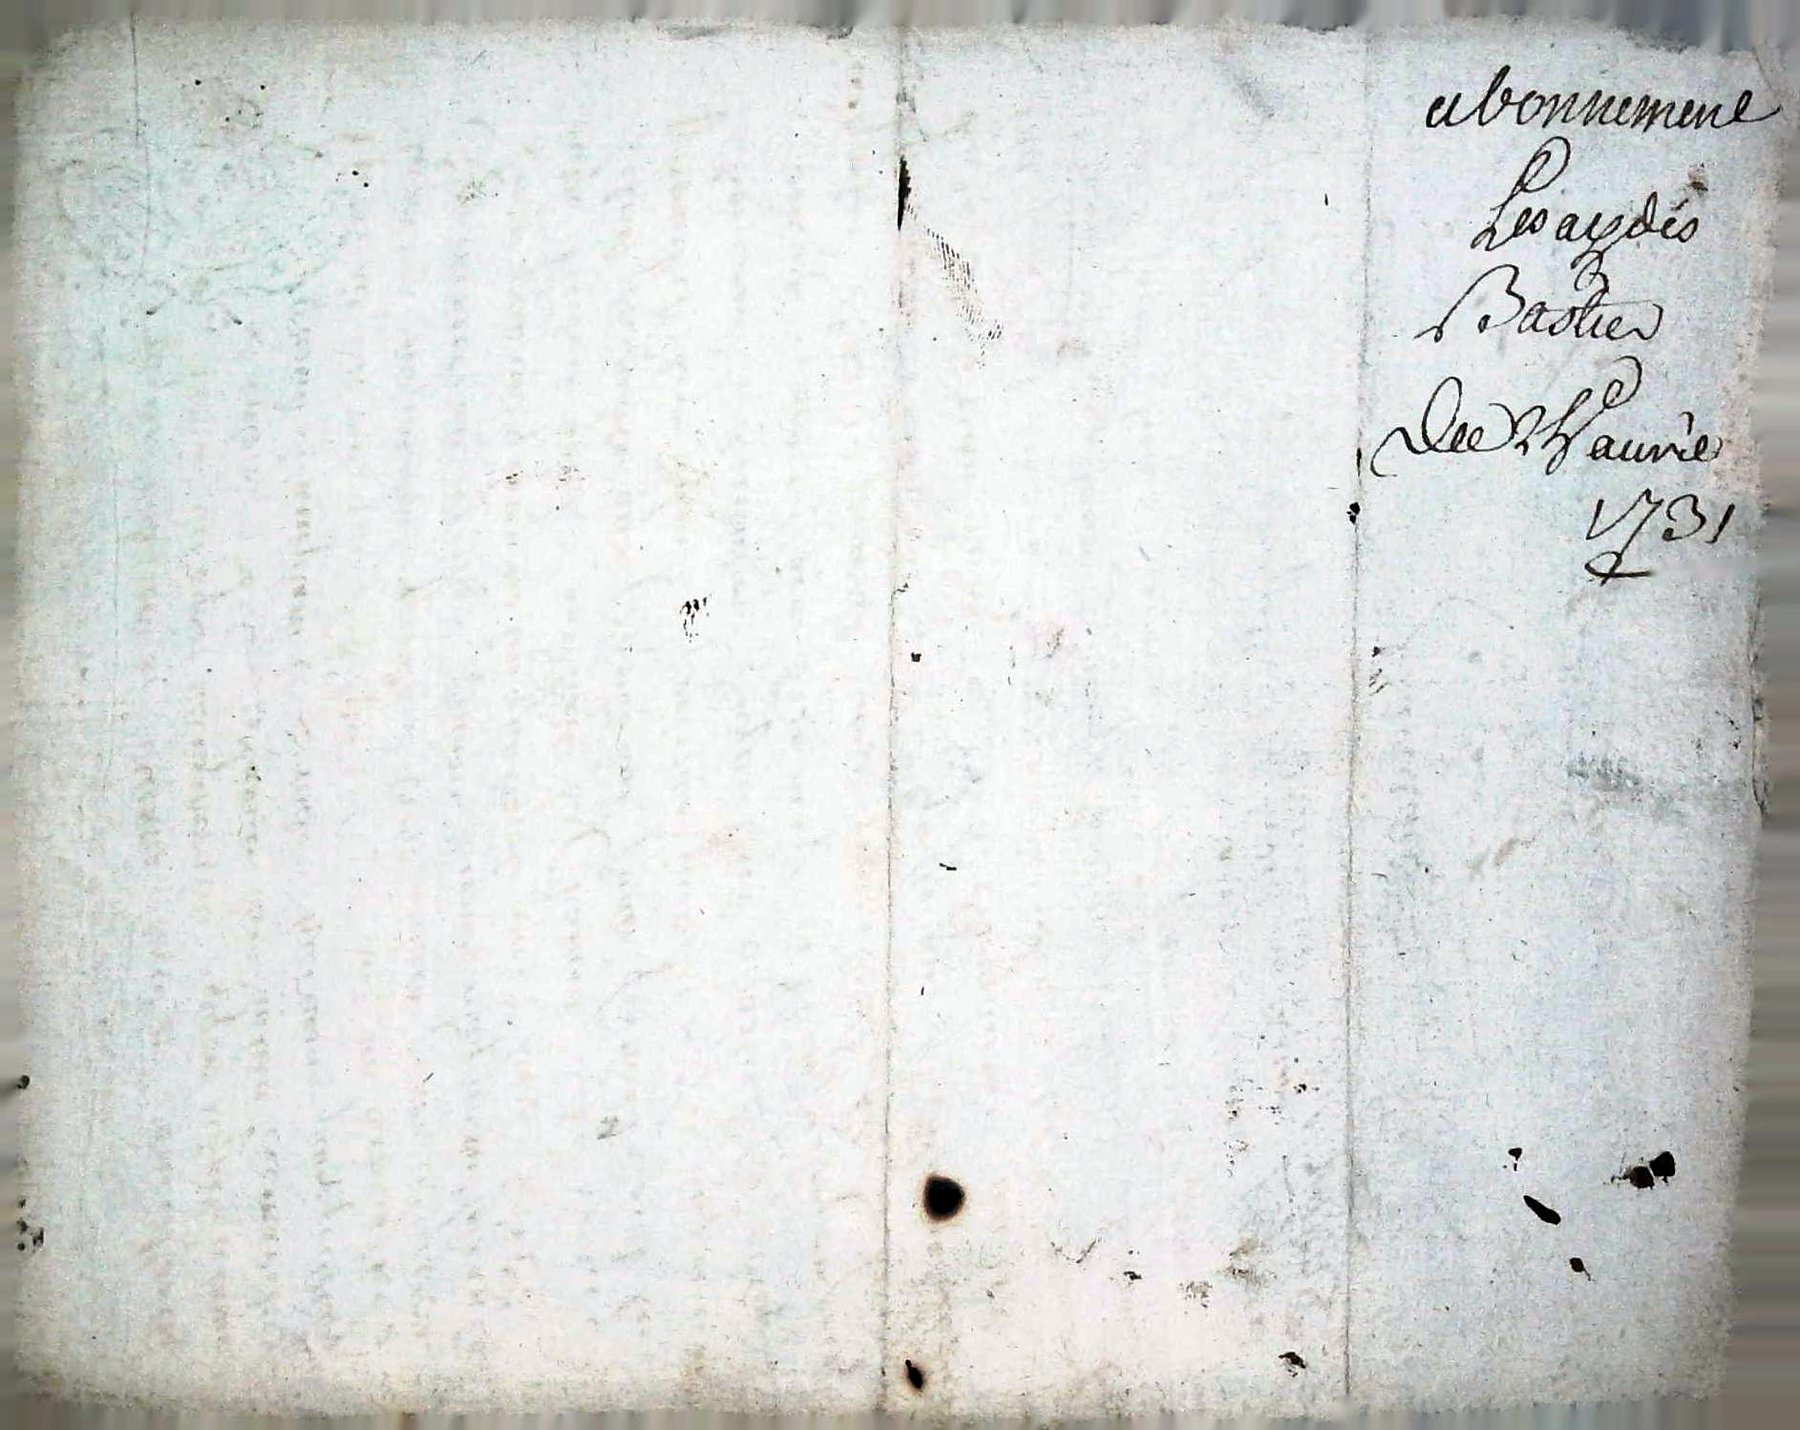 abonnement
Les aydes
Bastier
De Wavrie
1731